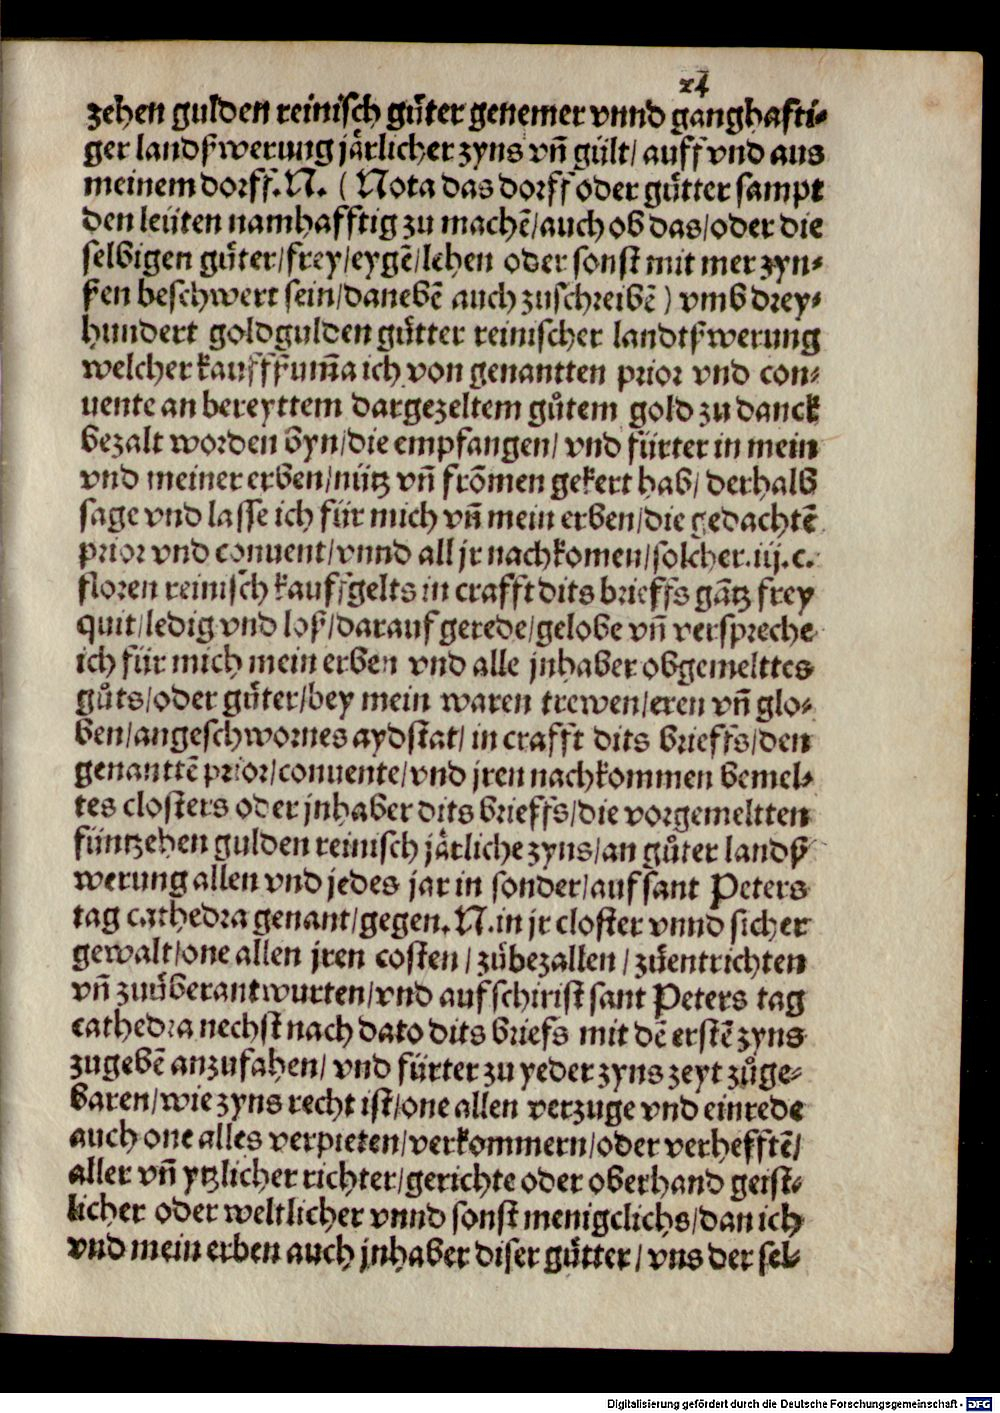 24
zehen gulden reinisch guͤter genemer vnnd ganghafti-
ger landßwerung jaͤrlicher zyns vñ guͤlt/ auff vnd aus
meinem dorff. N. ( Nota das dorff oder guͤtter sampt
den leüten namhafftig zu machẽ/ auch ob das/ oder die
selbigen guͤter/ frey/ eygẽ/ lehen oder sonst mit mer zyn-
ßen beschwert sein/ danebẽ auch zuschreibẽ ) vmb drey-
hundert goldgulden guͤtter reinischer landtßwerung
welcher kauffßum̃a ich von genantten prior vnd con-
uente an bereyttem dargezeltem guͦtem gold zu danck
bezalt worden byn/ die empfangen/ vnd fürter in mein
vnd meiner erben/ nütz vñ frõmen gekert hab/ derhalb
sage vnd lasse ich für mich vñ mein erben/ die gedachtẽ
prior vnd conuent/ vnnd all jr nachkomen/ solcher. iij. c.
floren reinisch kauffgelts in crafft dits brieffs gãtz frey
quit/ ledig vnd loß/ darauf gerede/ gelobe vñ verspreche
ich für mich mein erben vnd alle jnhaber obgemelttes
guͦts/ oder guͤter/ bey mein waren trewen/ eren vñ glo-
ben/ angeschwornes aydstat/ in crafft dits brieffs/ den
genanttẽ prior/ conuente/ vnd jren nachkommen bemel-
tes closters oder jnhaber dits brieffs/ die vorgemeltten
füntzehen gulden reinisch jaͤrliche zyns/ an guͦter landß
werung allen vnd jedes jar in sonder/ auf sant Peters
tag cathedra genant/ gegen. N. in jr closter vnnd sicher
gewalt/ one allen jren costen / zuͦbezallen / zuͦentrichten
vñ zuuͤberantwurten/ vnd auf schirist sant Peters tag
cathedra nechst nach dato dits briefs mit dẽ erstẽ zyns
zugebẽ anzufahen/ vnd fürter zu yeder zyns zeyt zuͦge-
baren/ wie zyns recht ist/ one allen verzuge vnd einrede
auch one alles verpieten/ verkommern/ oder verhefftẽ/
aller vñ ytzlicher richter/ gerichte oder oberhand geist-
licher oder weltlicher vnnd sonst menigclichs/ dan ich
vnd mein erben auch jnhaber diser guͤtter/ vns der sel-
Digitalisierung gefördert durch die Deutsche Forschungsgemeinschaft - DFG